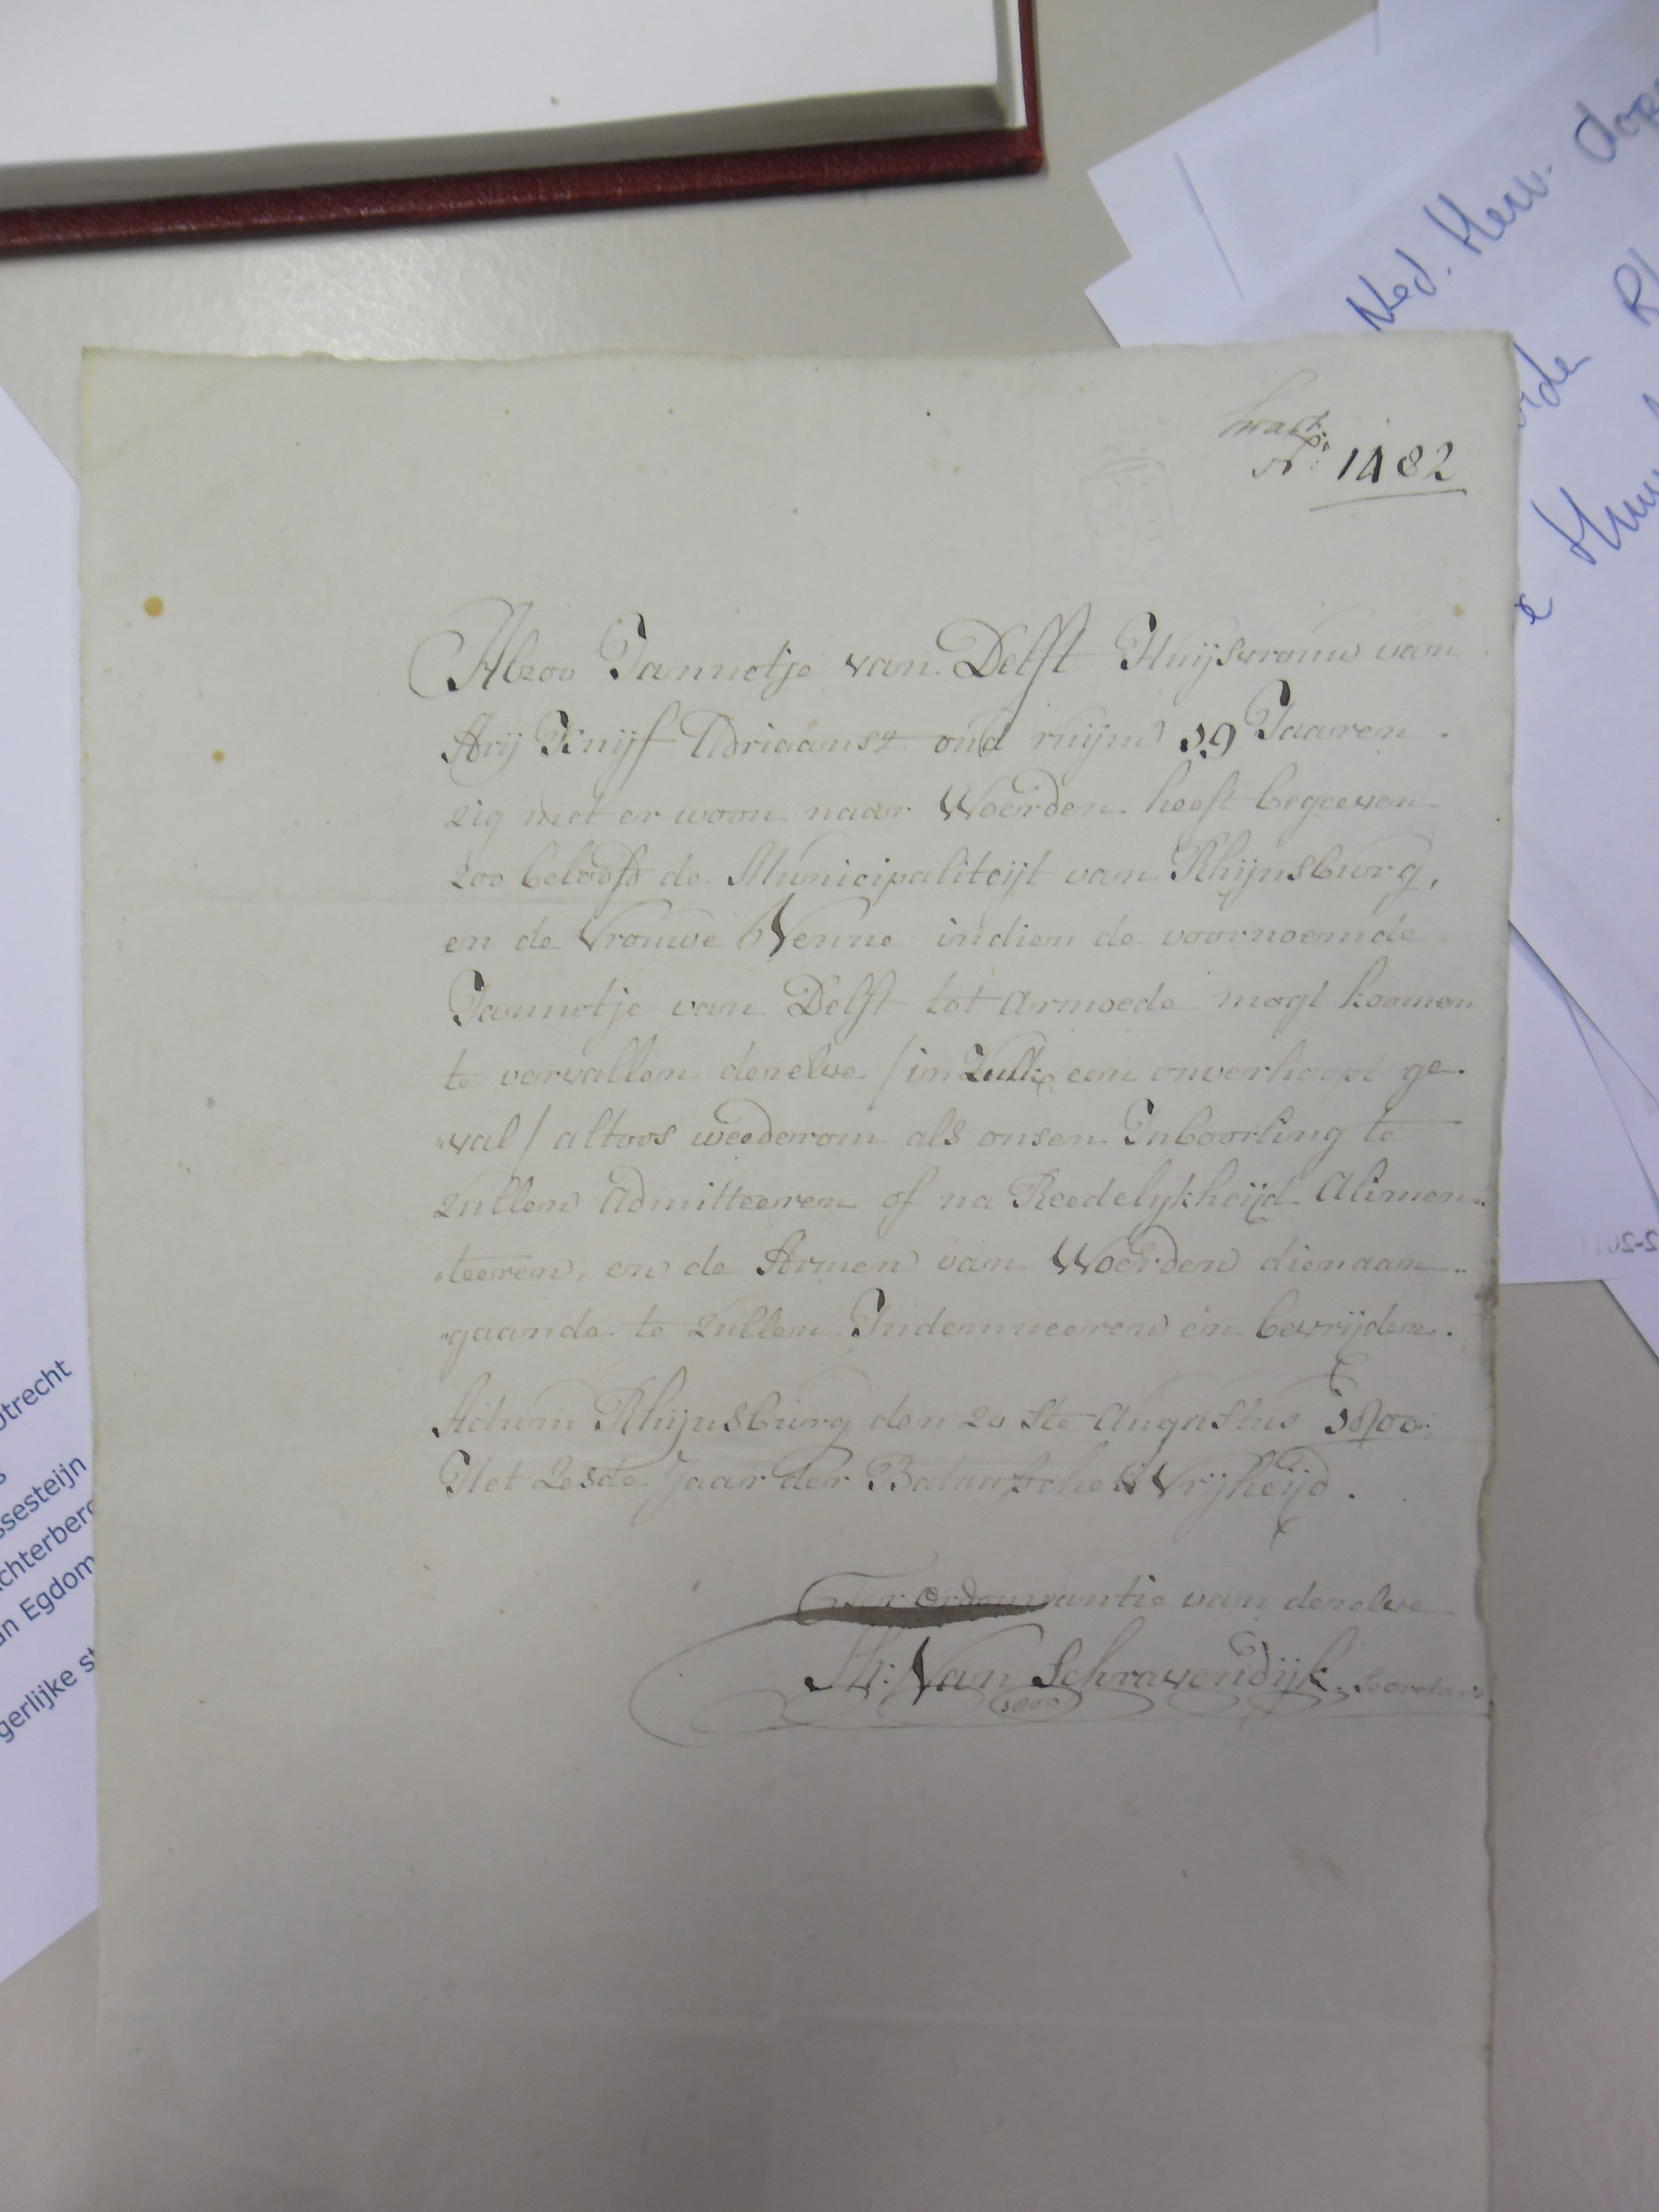 Ned. Herv. doop
N.o 1482
Alzoo Jannetje van Delft Huijsvrouw van
Arij Knijf Adriaansz oud ruijm 39 Jaaren.
zig met er woon naar Woerden heeft begeeven
zoo beloofd de Municipaliteijt van Rhijnsburg,
en de Vrouwe Venne indien de voornoemde
Jannetje van Delft tot armoede mogt koomen
te vervallen denelve /in Zulk een onverhoopt ge-
„val/ altoos weederom als onsen Inboorling te
zullen Admitteeren of na Reedelykheijd Alimen„
„teeren, en de Armen van Woerden dienaan„
„gaande te zullen Indemneeren en bevrijden.
Actum Rhijnsburg den 20ste Augustus 1800:
Het 6sde Jaar der Bataafsche Vrijheijd.
Ter Ordonnantie van denelve
Van Schravendijk. Secretaris
1800
Utrecht
ssesteijn
chterberg
an Egdom
gerlijke st